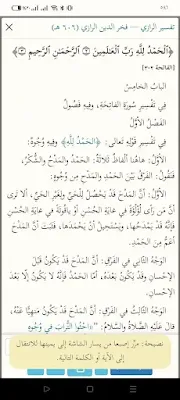 تفسير الرازي — فخر الدين الرازي (٦٠٦ هـ)
﴿ٱلۡحَمۡدُ لِلَّهِ رَبِّ ٱلۡعَـٰلَمِینَ ۝٢ ٱلرَّحۡمَـٰنِ ٱلرَّحِیمِ ۝٣﴾
[الفاتحة ٢-٣]
الباب الخامِسُ
فِي تَفْسِيرِ سُورَةِ الفاتِحَةِ، وفِيهِ فُصُولٌ
الفَصْلُ الأوَّلُ
فِي تَفْسِيرِ قَوْلِهِ تَعالى: ﴿الحَمْدُ لِلَّهِ﴾ وفِيهِ وُجُوهٌ:
الأوَّلُ: هاهُنا ألْفاظٌ ثَلاثَةٌ: الحَمْدُ، والمَدْحُ والشُّكْرُ،
فَنَقُولُ: الفَرْقُ بَيْنَ الحَمْدِ والمَدْحِ مِن وُجُوهٍ:
الأوَّلُ: أنَّ المَدْحَ قَدْ يَحْصُلُ لِلْحَيِّ ولِغَيْرِ الحَيِّ، ألا تَرى
أنَّ مَن رَأى لُؤْلُؤَةً في غايَةِ الحُسْنِ أوْ ياقُوتَةً في غايَةِ الحُسْنِ
فَإنَّهُ قَدْ يَمْدَحُها، ويَسْتَحِيلُ أنْ يَحْمَدَها، فَثَبَتَ أنَّ المَدْحَ
أعَمُّ مِنَ الحَمْدِ.
الوَجْهُ الثّانِي في الفَرْقِ: أنَّ المَدْحَ قَدْ يَكُونُ قَبْلَ
الإحْسانِ وقَدْ يَكُونُ بَعْدَهُ، أمّا الحَمْدُ فَإنَّهُ لا يَكُونُ إلّا بَعْدَ
الإحْسانِ.
الوَجْهُ الثّالِثُ في الفَرْقِ: أنَّ المَدْحَ قَدْ يَكُونُ مَنهِيًّا عَنْهُ،
قالَ عَلَيْهِ الصَّلاةُ والسَّلامُ: "«احْثُوا التُّرابَ في وُجُوهِ
نصيحة: مرّر إصبعا من يسار الشاشة إلى يمينها للانتقال
إلى الآية أو الكلمة التالية.